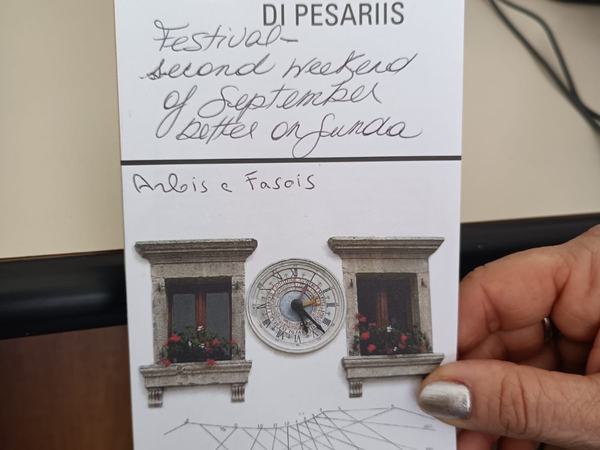 DI PESARIIS
Festival-
second weekend
of September
better on Sunda
Arbis e Fasois